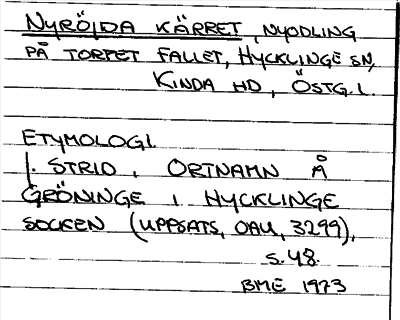 NYRÖJDA KÄRRET, NYODLING
PÅ TORPET FALLET, HYCKLINGE SN,
KINDA HD, ÖSTG. L.
ETYMOLOGI.
J. STRID, ORTNAMN PÅ
GRÖNINGE I HYCKLINGE
SOCKEN (UPPSATS, OAU, 3299),
S. 48.
BME 1973